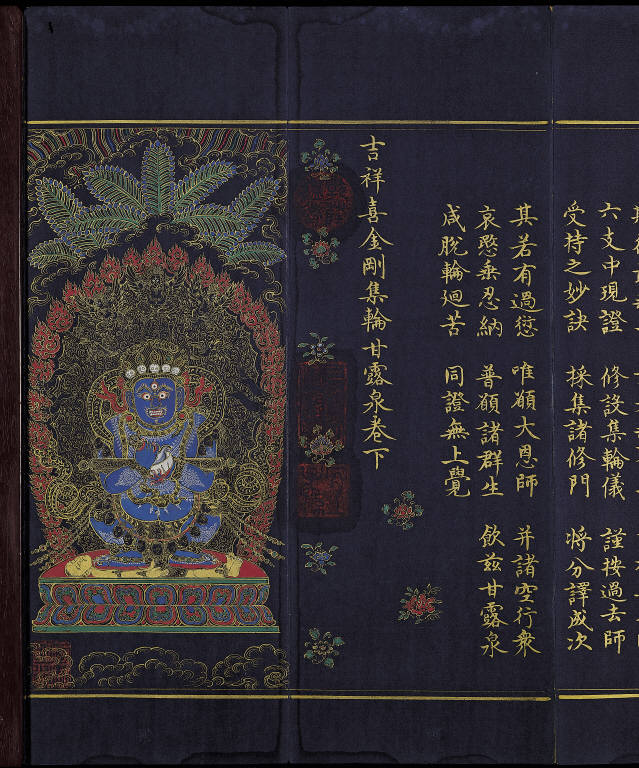 六支中現證 修設集輪儀 謹按過去師
受持之妙訣 採集諸修門 將分譯成次
其若有過愆 唯願大恩師 并諸空行衆
哀愍垂忍納 普願諸群生 飲茲甘露泉
咸脫輪迴苦 同證無上覺
吉祥喜金剛集輪甘露泉卷下